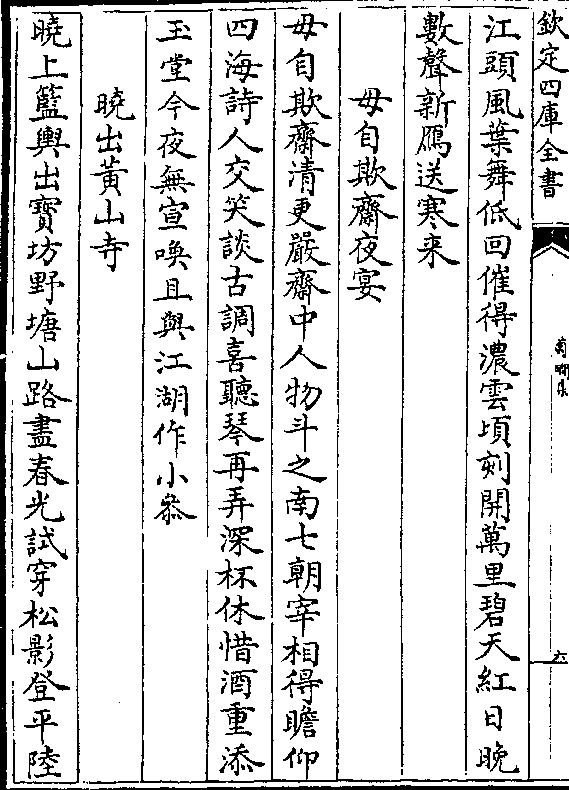 欽定四庫全書
六
江頭風葉舞低回催得濃雲頃刻開萬里碧天紅日晚
數聲新鴈送寒来
毋自欺齋夜宴
毋自欺齋清更嚴齋中人物斗之南七朝宰相得瞻仰
四海詩人交笑談古調喜聽琴再弄深杯休惜酒重添
玉堂今夜無宣喚且與江湖作小叅
曉出黃山寺
曉上籃輿出寶坊野塘山路盡春光試穿松影登平陸